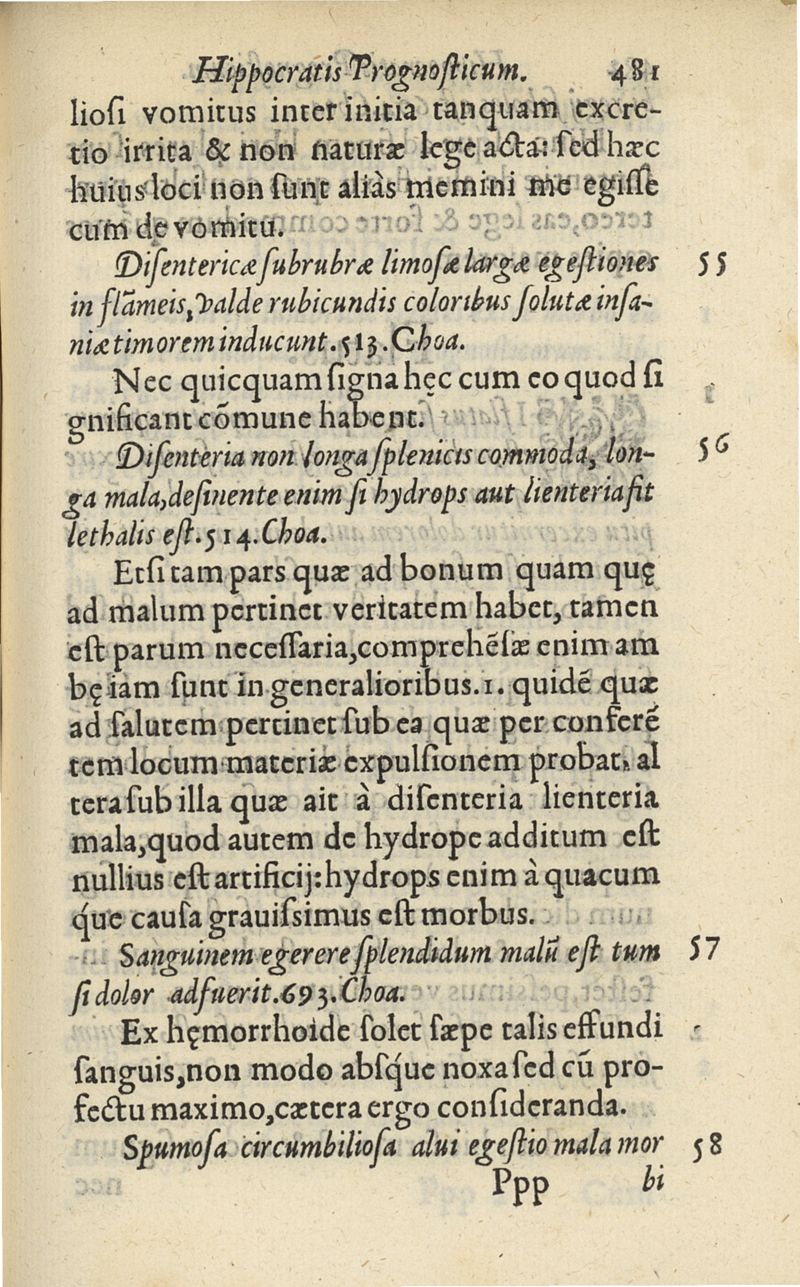 Hippocratis Prognoſticum. 481
lioſi vomitus inter initia tanquam excre-
tio irrita & non naturæ lege acta: ſed hæc
huius loci non ſunt aliàs memini me egiſſe
cum de vomitu.
Diſentericæ ſubrubræ limoſæ largæ egeſtiones 55
in flāmeis, valde rubicundis coloribus ſolutæ inſa-
niæ timorem inducunt. 513. Choa.
Nec quicquam ſigna hęc cum eo quod ſi
gnificant cõmune habent.
Diſenteria non longa ſplenicis commoda, lon- 56
ga mala, deſinente enim ſi hydrops aut lienteria fit
lethalis eſt. 514. Choa.
Etſi tam pars quæ ad bonum quam quę
ad malum pertinet veritatem habet, tamen
eſt parum neceſſaria, comprehẽſæ enim am
bę iam ſunt in generalioribus. 1. quidẽ quæ
ad ſalutem pertinet ſub ea quæ per conferẽ
tem locum materiæ expulſionem probat, al
tera ſub illa quæ ait à diſenteria lienteria
mala, quod autem de hydrope additum eſt
nullius eſt artificij: hydrops enim à quacum
q́ue cauſa grauiſsimus eſt morbus.
Sanguinem egerere ſplendidum malũ eſt tum 57
ſi dolor adfuerit. 693. Choa.
Ex hęmorrhoide ſolet ſæpe talis effundi
ſanguis, non modo abſq́ue noxa ſed cũ pro-
fectu maximo, cætera ergo conſideranda.
Spumoſa circumbilioſa alui egeſtio mala mor 58
Ppp bi